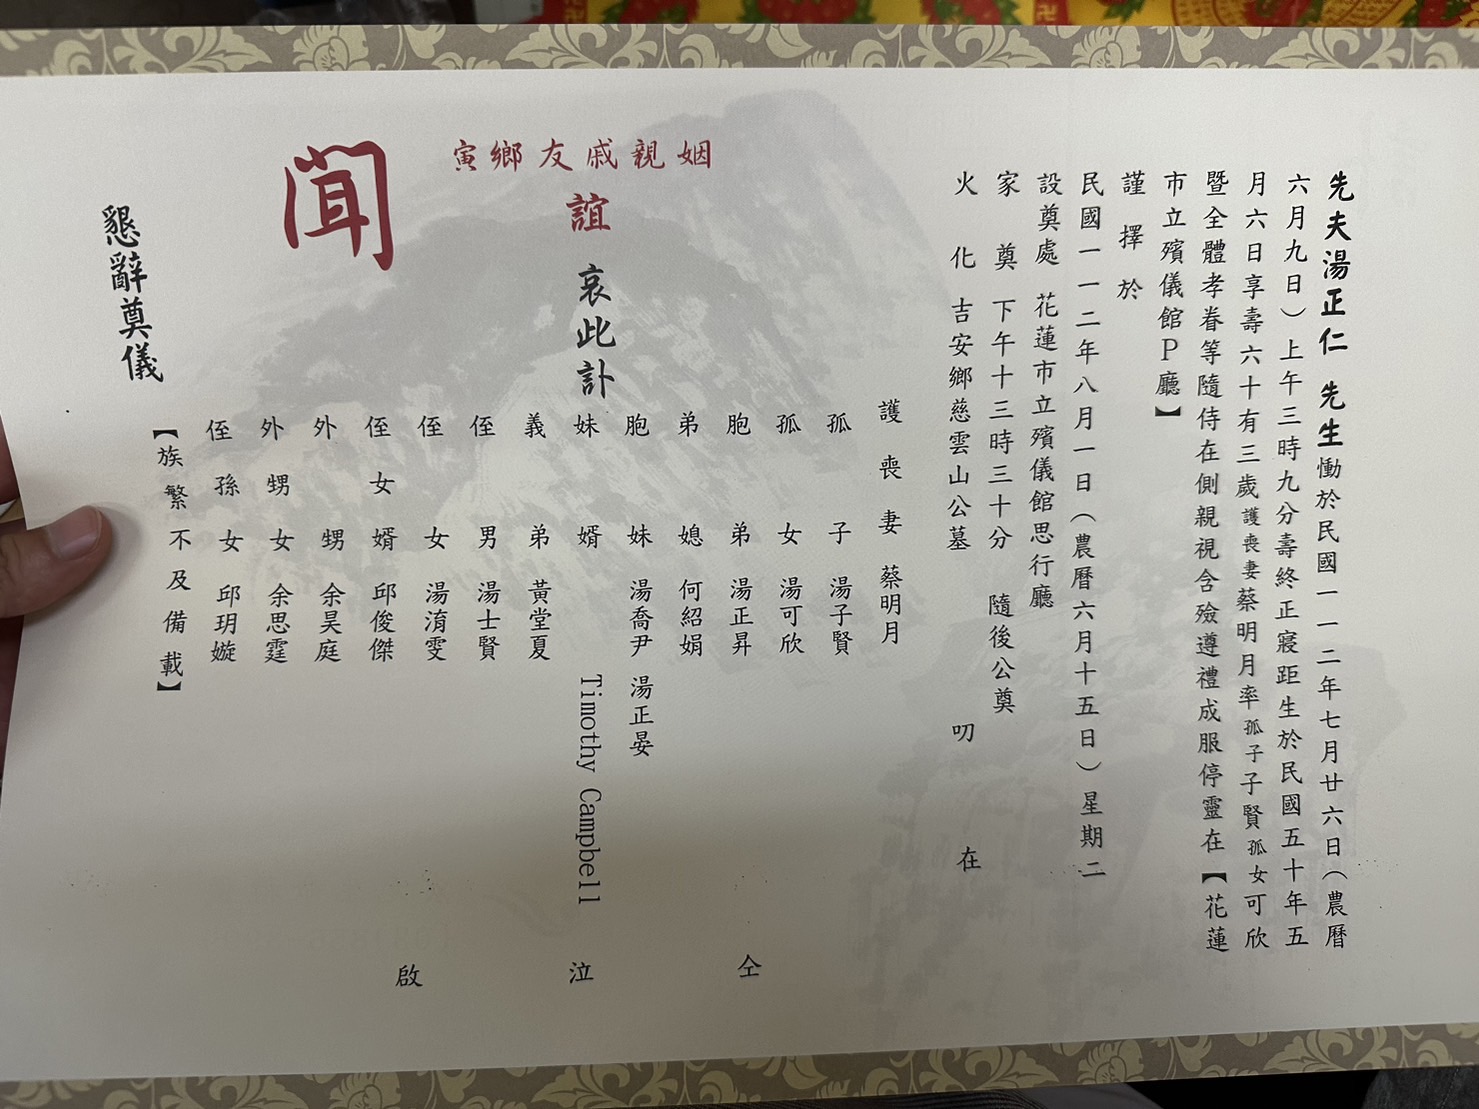 先夫湯正仁 先生慟於民國一一二年七月廿六日(農曆
六月九日)上午三時九分壽終正寢距生於民國五十年五
月六日享壽六十有三歲護喪妻蔡明月率孤子子賢孤女可欣
暨全體孝眷等隨侍在側親視含殮遵禮成服停靈在【花蓮
市立殯儀館P廳】
謹擇於
民國一一二年八月一日(農曆六月十五日)星期二
設奠處 花蓮市立殯儀館思行廳
家奠 下午十三時三十分 隨後公奠
火化 吉安鄉慈雲山公墓 叨在
寅鄉友戚親姻
誼 哀此訃
聞
護喪妻 蔡明月
孤子 湯子賢
孤女 湯可欣
胞弟 湯正昇
弟媳 何紹娟
胞妹 湯喬尹 湯正晏
妹婿 Timothy Campbell
義弟 黃堂夏
侄男 湯士賢
侄女 湯淯雯
侄女婿 邱俊傑
外甥 余昊庭
外甥女 余思霆
侄孫女 邱玥嫙
【族繁不及備載】
仝泣啟
懇辭奠儀